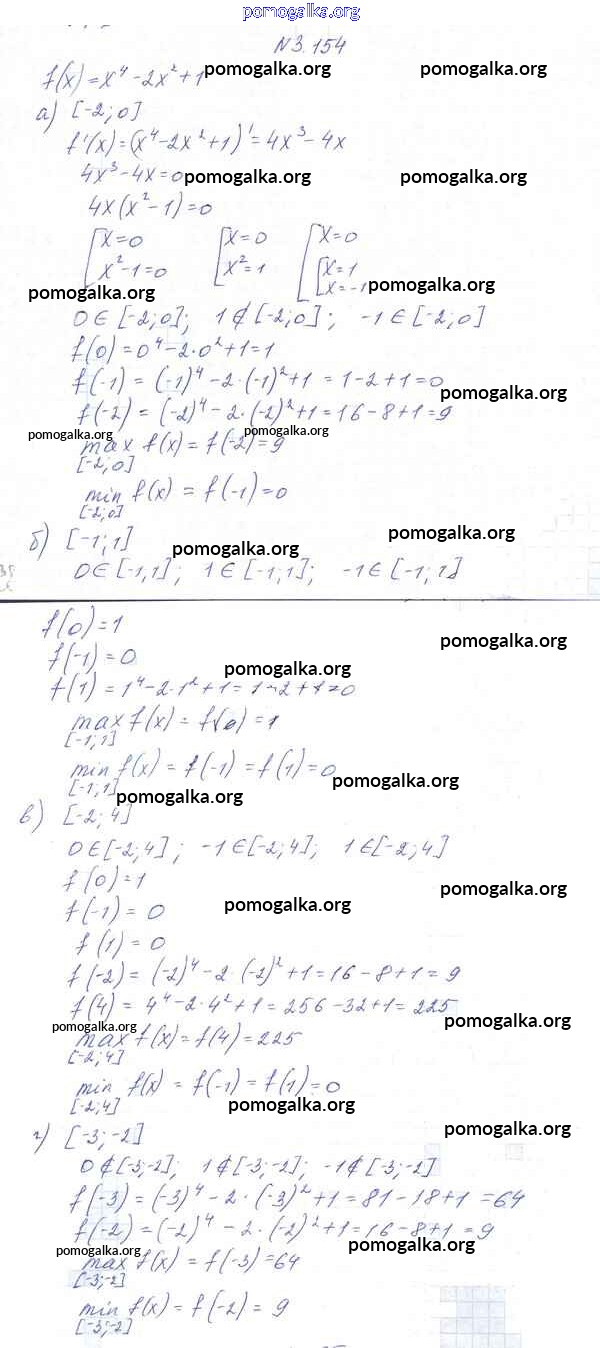 pomogalka.org
N3.154
f(x)=x⁴-2x²+1 pomogalka.org pomogalka.org
а) [-2;0]
f'(x)=(x⁴-2x²+1)'=4x³-4x
4x³-4x=0 pomogalka.org pomogalka.org
4x(x²-1)=0
[x=0 [x=0 [x=0
x²-1=0 x²=1 [x=1
x=-1 pomogalka.org
pomogalka.org
0∈[-2;0]; 1∉[-2;0]; -1∈[-2;0]
f(0)=0⁴-2·0²+1=1
f(-1)=(-1)⁴-2·(-1)²+1=1-2+1=0
pomogalka.org
f(-2)=(-2)⁴-2·(-2)²+1=16-8+1=9
pomogalka.org pomogalka.org
max f(x)=f(-2)=9
[-2;0]
min f(x)=f(-1)=0
[-2;0]
б) [-1;1] pomogalka.org pomogalka.org
0∈[-1,1]; 1∈[-1;1]; -1∈[-1;1]
f(0)=1
pomogalka.org
f(-1)=0
pomogalka.org
f(1)=1⁴-2·1²+1=1-2+1=0
max f(x)=f(0)=1
[-1;1]
min f(x)=f(-1)=f(1)=0
[-1,1] pomogalka.org pomogalka.org
в) [-2;4]
0∈[-2;4]; -1∈[-2;4]; 1∈[-2;4]
f(0)=1
pomogalka.org
f(-1)=0 pomogalka.org
f(1)=0
f(-2)=(-2)⁴-2·(-2)²+1=16-8+1=9
f(4)=4⁴-2·4²+1=256-32+1=225
pomogalka.org pomogalka.org
max f(x)=f(4)=225
[-2;4]
min f(x)=f(-1)=f(1)=0
[-2;4] pomogalka.org
г) [-3;-2] pomogalka.org
0∉[-3;-2]; 1∉[-3;-2]; -1∉[-3;-2]
f(-3)=(-3)⁴-2·(-3)²+1=81-18+1=64
f(-2)=(-2)⁴-2·(-2)²+1=16-8+1=9
pomogalka.org pomogalka.org
max f(x)=f(-3)=64
[-3;-2]
min f(x)=f(-2)=9
[-3;-2]